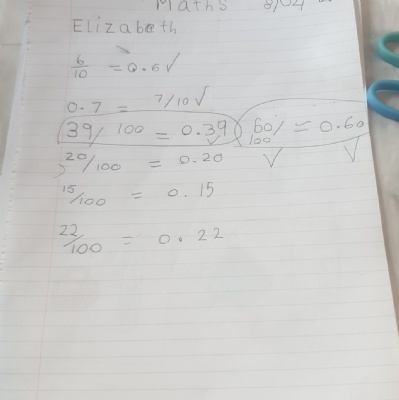 Maths
Elizabeth
6/10 = 0.6 ✓
0.7 = 7/10 ✓
39/100 = 0.39 ✓ 60/100 = 0.60 ✓ ✓
20/100 = 0.20
15/100 = 0.15
22/100 = 0.22